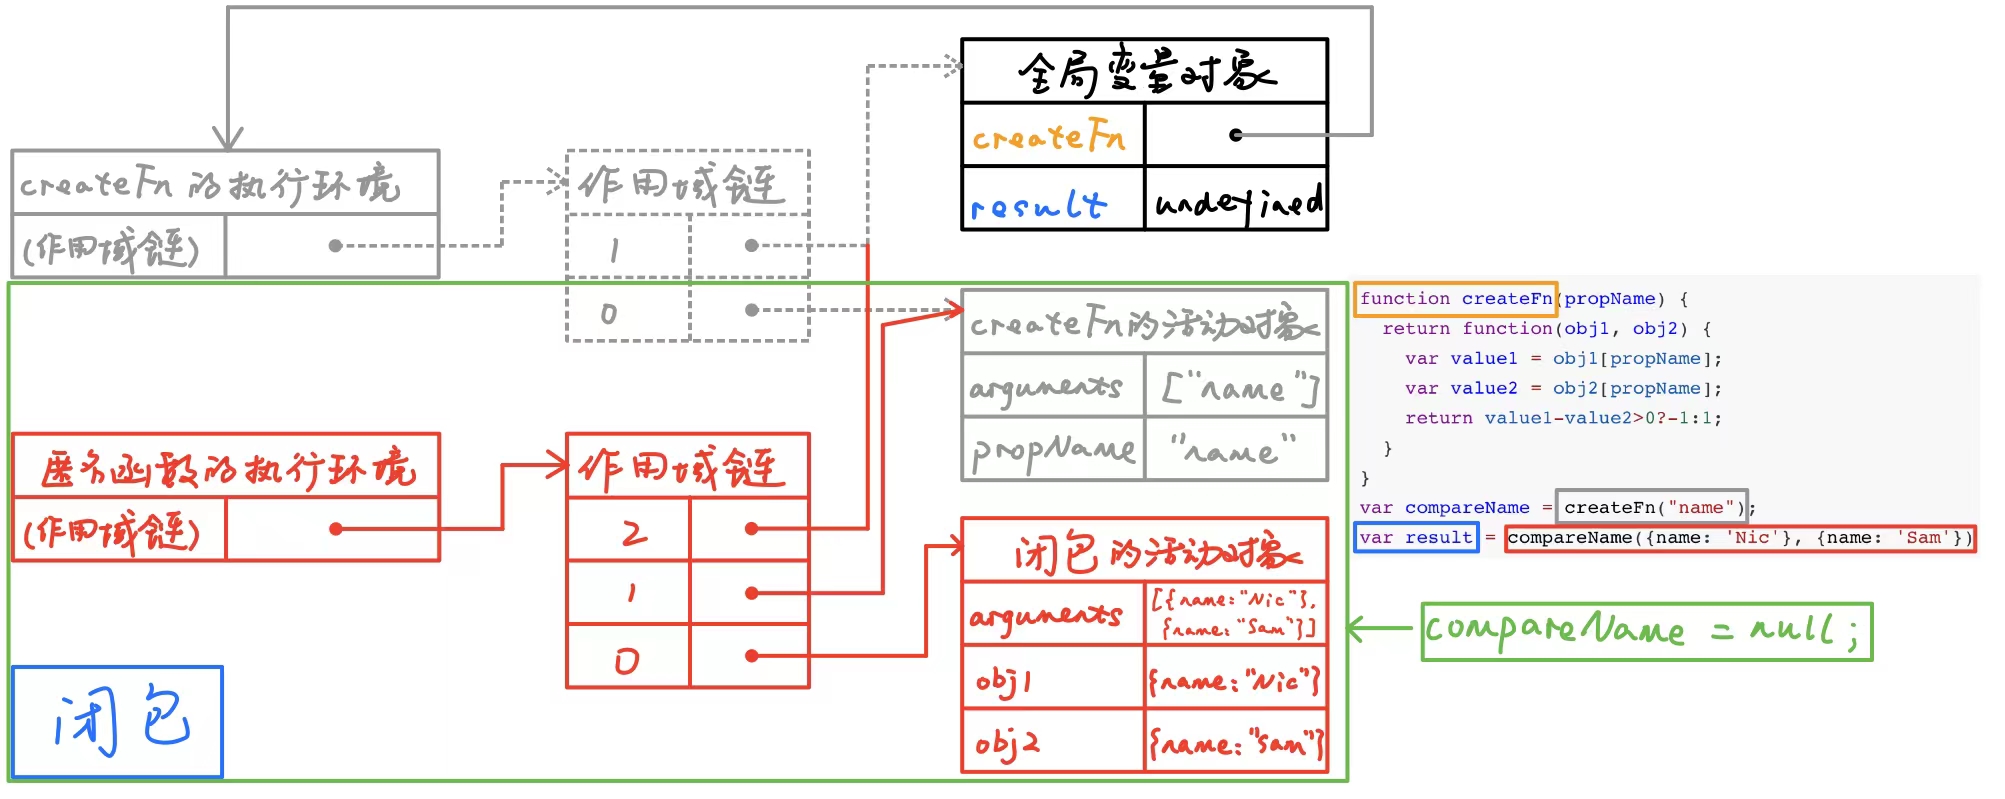 全局变量对象
createFn
result undefined
createFn的执行环境
(作用域链)
作用域链
1
0
createFn的活动对象
arguments ["name"]
propName "name"
匿名函数的执行环境
(作用域链)
作用域链
2
1
0
闭包的活动对象
arguments [{name:"Nic"},
{name:"Sam"}]
obj1 {name:"Nic"}
obj2 {name:"Sam"}
闭包
function createFn(propName) {
return function(obj1, obj2) {
var value1 = obj1[propName];
var value2 = obj2[propName];
return value1-value2>0?-1:1;
}
}
var compareName = createFn("name");
var result = compareName({name: 'Nic'}, {name: 'Sam'})
compareName = null;